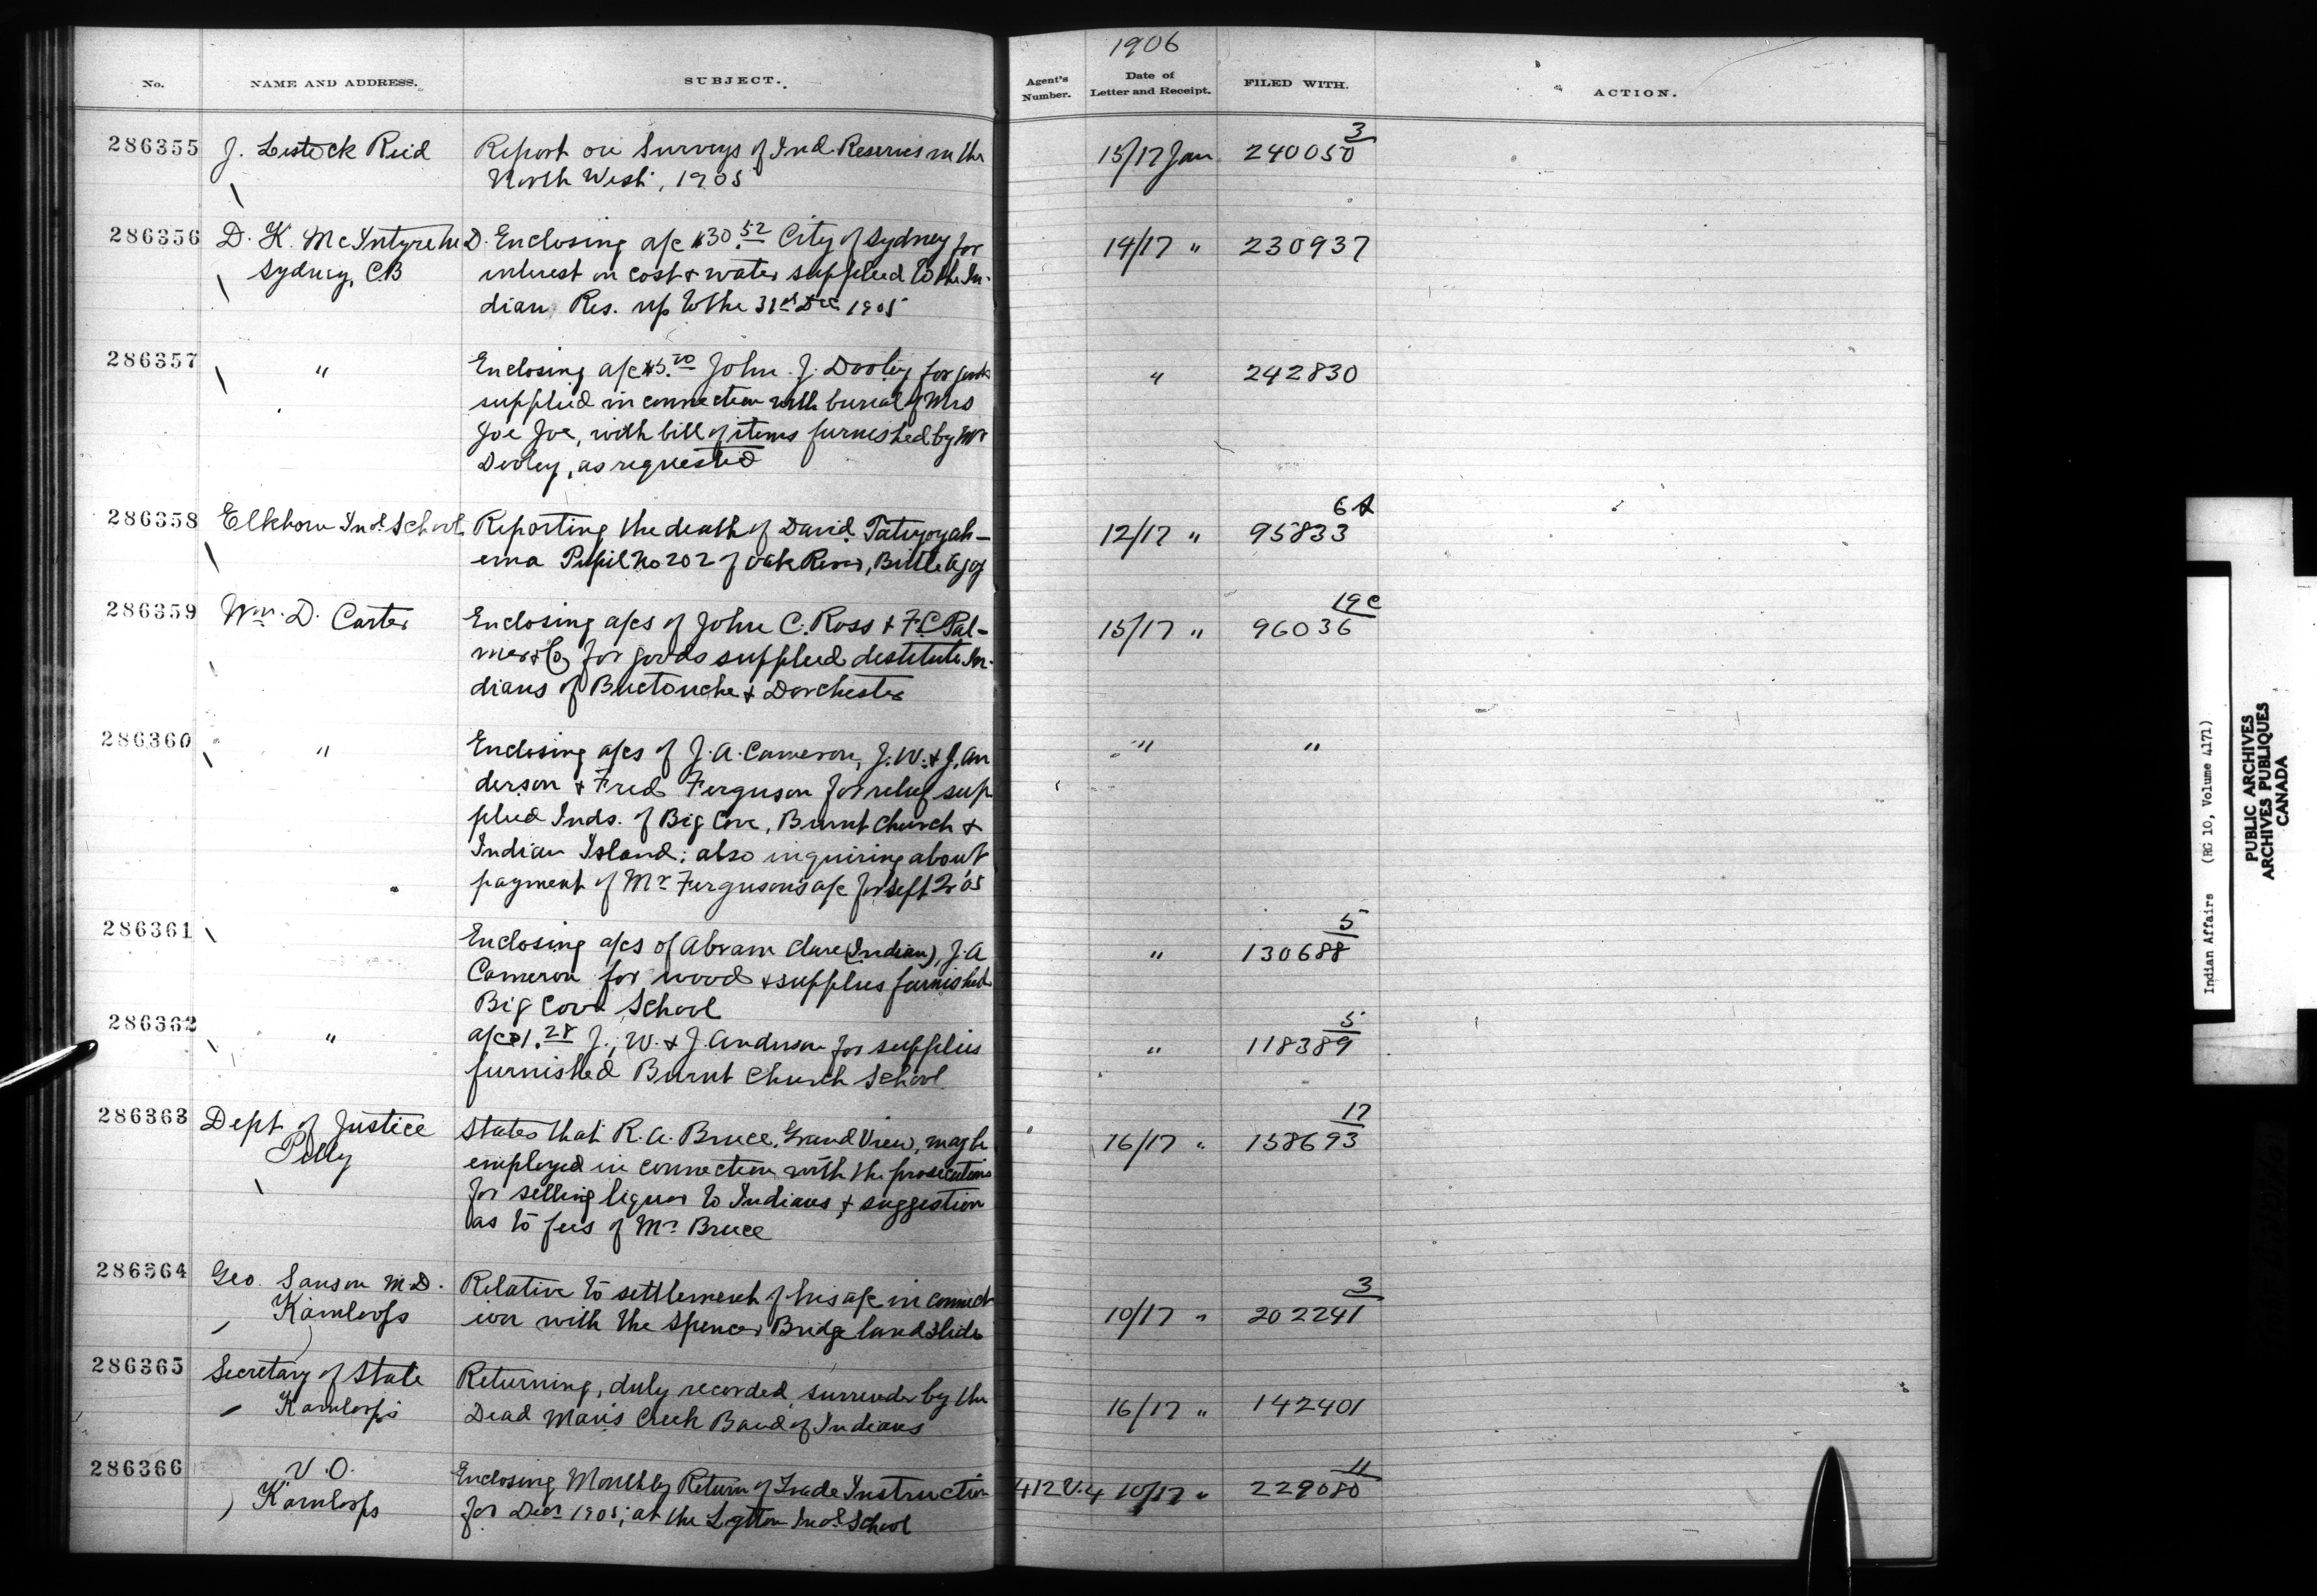 1906
No. NAME AND ADDRESS. SUBJECT. Agent's Number. Date of Letter and Receipt. FILED WITH. ACTION.
286355 J. Lestock Reid Report on Surveys of Ind Reserves in the 15/17 Jan 240050 3
North West, 1905
286356 D. K. McIntyre M.D. Enclosing a/c $30.52 City of Sydney for 14/17 " 230937
Sydney, C.B interest on cost & water supplied to the In-
dian Res. up to the 31st Dec 1905
286357 " Enclosing a/c $5.00 John J. Dooley for goods " 242830
supplied in connection with burial of Mrs
Joe Joe, with bill of items furnished by Mr
Dooley, as requested
286358 Elkhorn Indl School Reporting the death of David 12/17 " 95833
ema Pupil No 202 of Oak River, Birtle Agcy
286359 Wm. D. Carter Enclosing a/cs of John C. Ross & F.C. Pal- 15/17 " 96036 19c
mer & Co for goods supplied destitute In-
dians of Buctouche & Dorchester
286360 " Enclosing a/cs of J. A. Cameron, J. W. & J. An " "
derson & Fred Ferguson for relief sup
plied Inds. of Big Cove, Burnt Church &
Indian Island; also inquiring about
payment of Mr Ferguson's a/c for Sept Qr '05
286361 Enclosing a/cs of Abram Clare (Indian), J. A " 130688 5
Cameron for wood & supplies furnished
Big Cove School
286362 " a/c $1.28 J. W. & J. Anderson for supplies " 118389 5
furnished Burnt Church School
286363 Dept of Justice States that R. A. Bruce, Grand View, may be 16/17 " 158693 17
Pelly employed in connection with the prosecutions
for selling liquor to Indians & suggestion
as to fees of Mr Bruce
286364 Geo. Sanson M.D. Relative to settlement of his a/c in connect 10/17 " 202241 3
Kamloops ion with the Spences Bridge landslide
286365 Secretary of State Returning, duly recorded, surrender by the 16/17 " 142401
Kamloops Dead Man's Creek Band of Indians
286366 V.O. Enclosing Monthly Return of Trade Instruction 412 V.4 10/17 " 229080 11
Kamloops for Decr 1905; at the Lytton Indl School
Indian Affairs (RG 10, Volume 4171)
PUBLIC ARCHIVES
ARCHIVES PUBLIQUES
CANADA